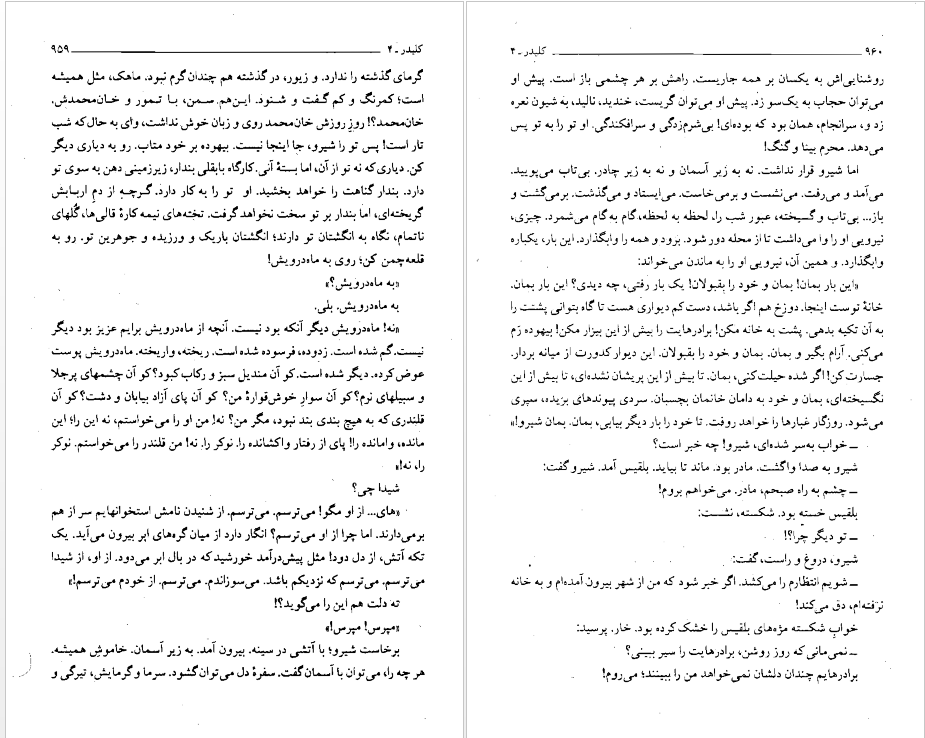 کلیدر ـ ۴ ۹۵۹
گرمای گذشته را ندارد. و زیور، در گذشته هم چندان گرم نبود. ماهک، مثل همیشه
است؛ کمرنگ و کم گفت و شنود. این‌هم سمن، با تمور و خان‌محمدش.
خان‌محمد؟! روزِ روزش خان‌محمد روی و زبان خوش نداشت، وای به حال که شب
تار است! پس تو را شیرو، جا اینجا نیست. بیهوده بر خود متاب. رو به دیاری دیگر
کن. دیاری که نه تو از آن، اما بستهٔ آنی. کارگاه بابقلی بندار، زیرزمینی دهن به سوی تو
دارد. بندار گناهت را خواهد بخشید. او تو را به کار دارد. گرچه از دمِ اربابش
گریخته‌ای، اما بندار بر تو سخت نخواهد گرفت. تخته‌های نیمه کارهٔ قالی‌ها، گُلهای
ناتمام، نگاه به انگشتان تو دارند؛ انگشتان باریک و ورزیده و جوهرین تو. رو به
قلعه‌چمن کن؛ روی به ماه‌درویش!
«به ماه‌درویش؟»
به ماه‌درویش. بلی.
«نه! ماه‌درویش دیگر آنکه بود نیست. آنچه از ماه‌درویش برایم عزیز بود دیگر
نیست. گم شده است. زدوده، فرسوده شده است. ریخته، واریخته. ماه‌درویش پوست
عوض کرده. دیگر شده است. کو آن مندیل سبز و رکاب کبود؟ کو آن چشمهای پرجلا
و سبیلهای نرم؟ کو آن سوارِ خوش‌قوارهٔ من؟ کو آن پای آزاد بیابان و دشت؟ کو آن
قلندری که به هیچ بندی بند نبود، مگر من؟ نه! من او را می‌خواستم، نه این را؛ این
مانده، وامانده را! پای از رفتار واکشانده را. نوکر را. نه! من قلندر را می‌خواستم. نوکر
را، نه!»
شیدا چی؟
«های... از او مگو! می‌ترسم. می‌ترسم. از شنیدن نامش استخوانهایم سر از هم
برمی‌دارند. اما چرا از او می‌ترسم؟ انگار دارد از میان گره‌های ابر بیرون می‌آید. یک
تکه آتش، از دل دود! مثل پیش‌درآمد خورشید که در بال ابر می‌دود. از او، از شیدا
می‌ترسم. می‌ترسم که نزدیکم باشد. می‌سوزاندم. می‌ترسم. از خودم می‌ترسم!»
ته دلت هم این را می‌گوید؟!
«مپرس! مپرس!»
برخاست شیرو؛ با آتشی در سینه. بیرون آمد. به زیر آسمان. خاموشِ همیشه.
هر چه را، می‌توان با آسمان گفت. سفرهٔ دل می‌توان گشود. سرما و گرمایش، تیرگی و
۹۶۰ کلیدر ـ ۴
روشنایی‌اش به یکسان بر همه جاریست. راهش بر هر چشمی باز است. پیش او
می‌توان حجاب به یک‌سو زد. پیش او می‌توان گریست، خندید، نالید، به شیون نعره
زد و، سرانجام، همان بود که بوده‌ای! بی‌شرم‌زدگی و سرافکندگی. او تو را به تو پس
می‌دهد. محرم بینا و گنگ!
اما شیرو قرار نداشت. نه به زیر آسمان و نه به زیر چادر. بی‌تاب می‌پویید.
می‌آمد و می‌رفت. می‌نشست و برمی‌خاست. می‌ایستاد و می‌گذشت. برمی‌گشت و
باز... بی‌تاب و گسیخته، عبور شب را، لحظه به لحظه، گام به گام می‌شمرد. چیزی،
نیرویی او را وا می‌داشت تا از محله دور شود. برود و همه را وابگذارد. این بار، یکباره
وابگذارد. و همین آن، نیرویی او را به ماندن می‌خواند:
«این بار بمان! بمان و خود را بقبولان! یک بار رفتی، چه دیدی؟ این بار بمان.
خانهٔ توست اینجا. دوزخ هم اگر باشد، دست‌کم دیواری هست تا گاه بتوانی پشتت را
به آن تکیه بدهی. پشت به خانه مکن! برادرهایت را بیش از این بیزار مکن! بیهوده زم
می‌کنی. آرام بگیر و بمان. بمان و خود را بقبولان. این دیوار کدورت از میانه بردار.
جسارت کن! اگر شده حیلت‌کنی، بمان. تا بیش از این پریشان نشده‌ای، تا بیش از این
نگسیخته‌ای، بمان و خود به دامان خانمان بچسبان. سردی پیوندهای بریده، سپری
می‌شود. روزگار غبارها را خواهد روفت. تا خود را بار دیگر بیابی، بمان. بمان شیرو!»
ــ خواب به‌سر شده‌ای، شیرو! چه خبر است؟
شیرو به صدا واگشت. مادر بود. ماند تا بیاید. بلقیس آمد. شیرو گفت:
ــ چشم به راه صبحم، مادر. می‌خواهم بروم!
بلقیس خسته بود. شکسته، نشست:
ــ تو دیگر چرا؟!
شیرو، دروغ و راست، گفت:
ــ شویم انتظارم را می‌کشد. اگر خبر شود که من از شهر بیرون آمده‌ام و به خانه
نرفته‌ام، دق می‌کند!
خوابِ شکسته مژه‌های بلقیس را خشک کرده بود. خار. پرسید:
ــ نمی‌مانی که روز روشن، برادرهایت را سیر ببینی؟
برادرهایم چندان دلشان نمی‌خواهد من را ببینند؛ می‌روم!